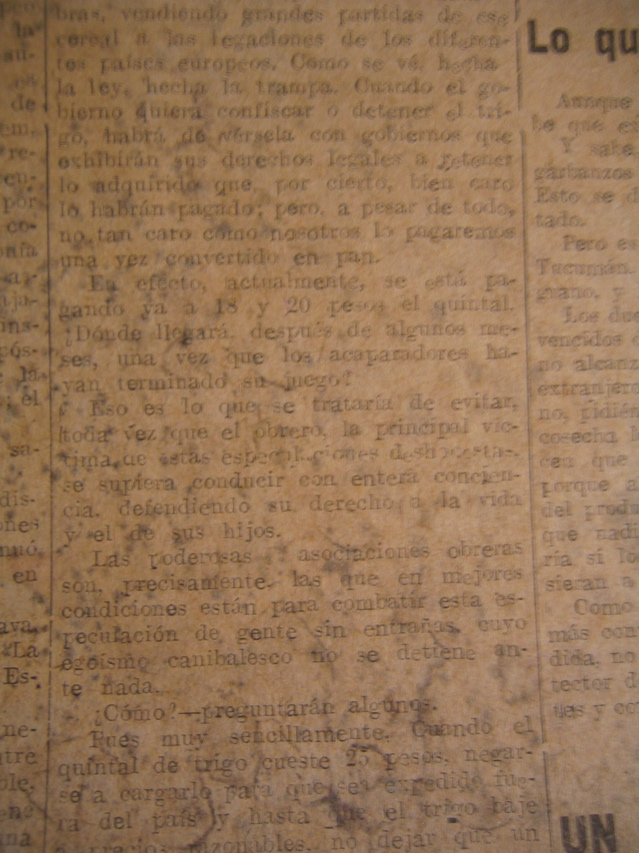 bras, vendiendo grandes partidas de ese
cereal a las legaciones de los diferen-
tes países europeos. Como se vé, hecha
la ley, hecha la trampa. Cuando el go-
bierno quiera confiscar o detener el tri-
go, habrá de vérsela con gobiernos que
exhibirán sus derechos legales a retener
lo adquirido que, por cierto, bien caro
lo habrán pagado; pero, a pesar de todo,
no tan caro como nosotros lo pagaremos
una vez convertido en pan.
En efecto, actualmente, se está pa-
gando ya a 18 y 20 pesos el quintal.
¿Dónde llegará, después de algunos me-
ses, una vez que los acaparadores ha-
yan terminado su juego?
Eso es lo que se trataría de evitar,
toda vez que el obrero, la principal víc-
tima de estas especulaciones
se supiera conducir con entera concien-
cia, defendiendo su derecho a la vida
y el de sus hijos.
Las poderosas asociaciones obreras
son, precisamente, las que en mejores
condiciones están para combatir esta es-
peculación de gente sin entrañas, cuyo
egoísmo canibalesco no se detiene an-
te nada...
¿Cómo?—preguntarán algunos.
Pues muy sencillamente. Cuando el
quintal de trigo cueste 25 pesos, negar-
se a cargarlo para que sea expedido fue-
ra del país y hasta que el trigo baje
a precios razonables, no dejar que un
Lo qu
Aunque
te que es
Y sabe
garbanzos
Esto se d
tado.
Pero es
Tucumán.
grano, y
Los due
vencidos d
no alcanz
extranjero
no, pidién
cosecha l
cen que
porque a
del produ
que nadi
ría si lo
sieran a
Como
más con
dida, no
tector d
les y co
UN